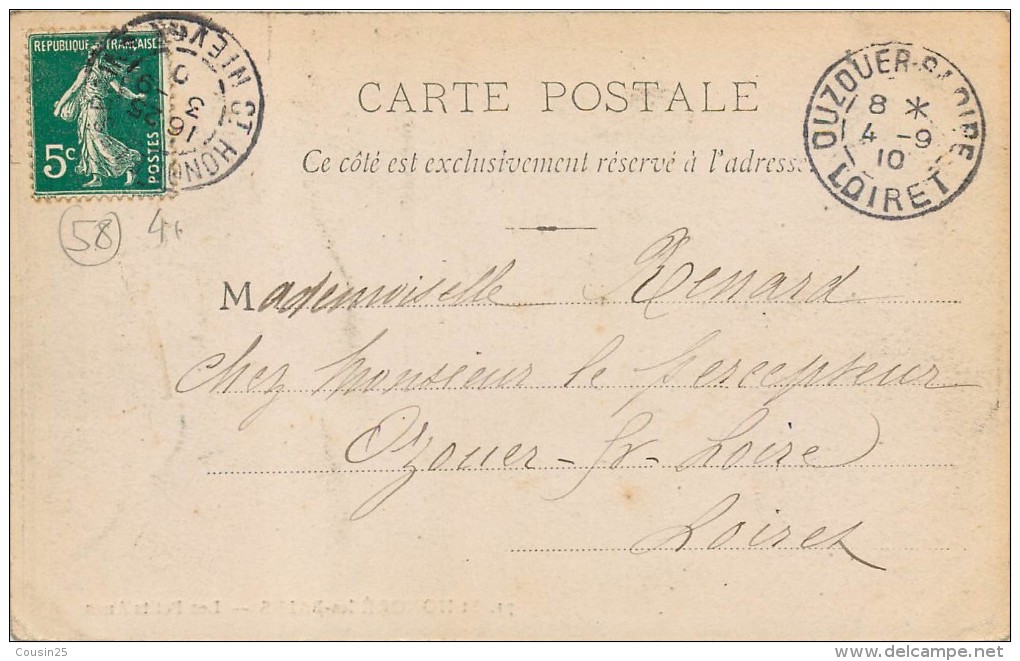 REPUBLIQUE FRANÇAISE
5c POSTES
ST HONO
NIEV
16 25
3
CARTE POSTALE
Ce côté est exclusivement réservé à l'adresse.
OUZOUER-S-LOIRE
8 *
4 - 9
10
LOIRET
58
Mademoiselle Renard
chez Monsieur le percepteur
Ozouer-sr-Loire
Loiret
Cousin25